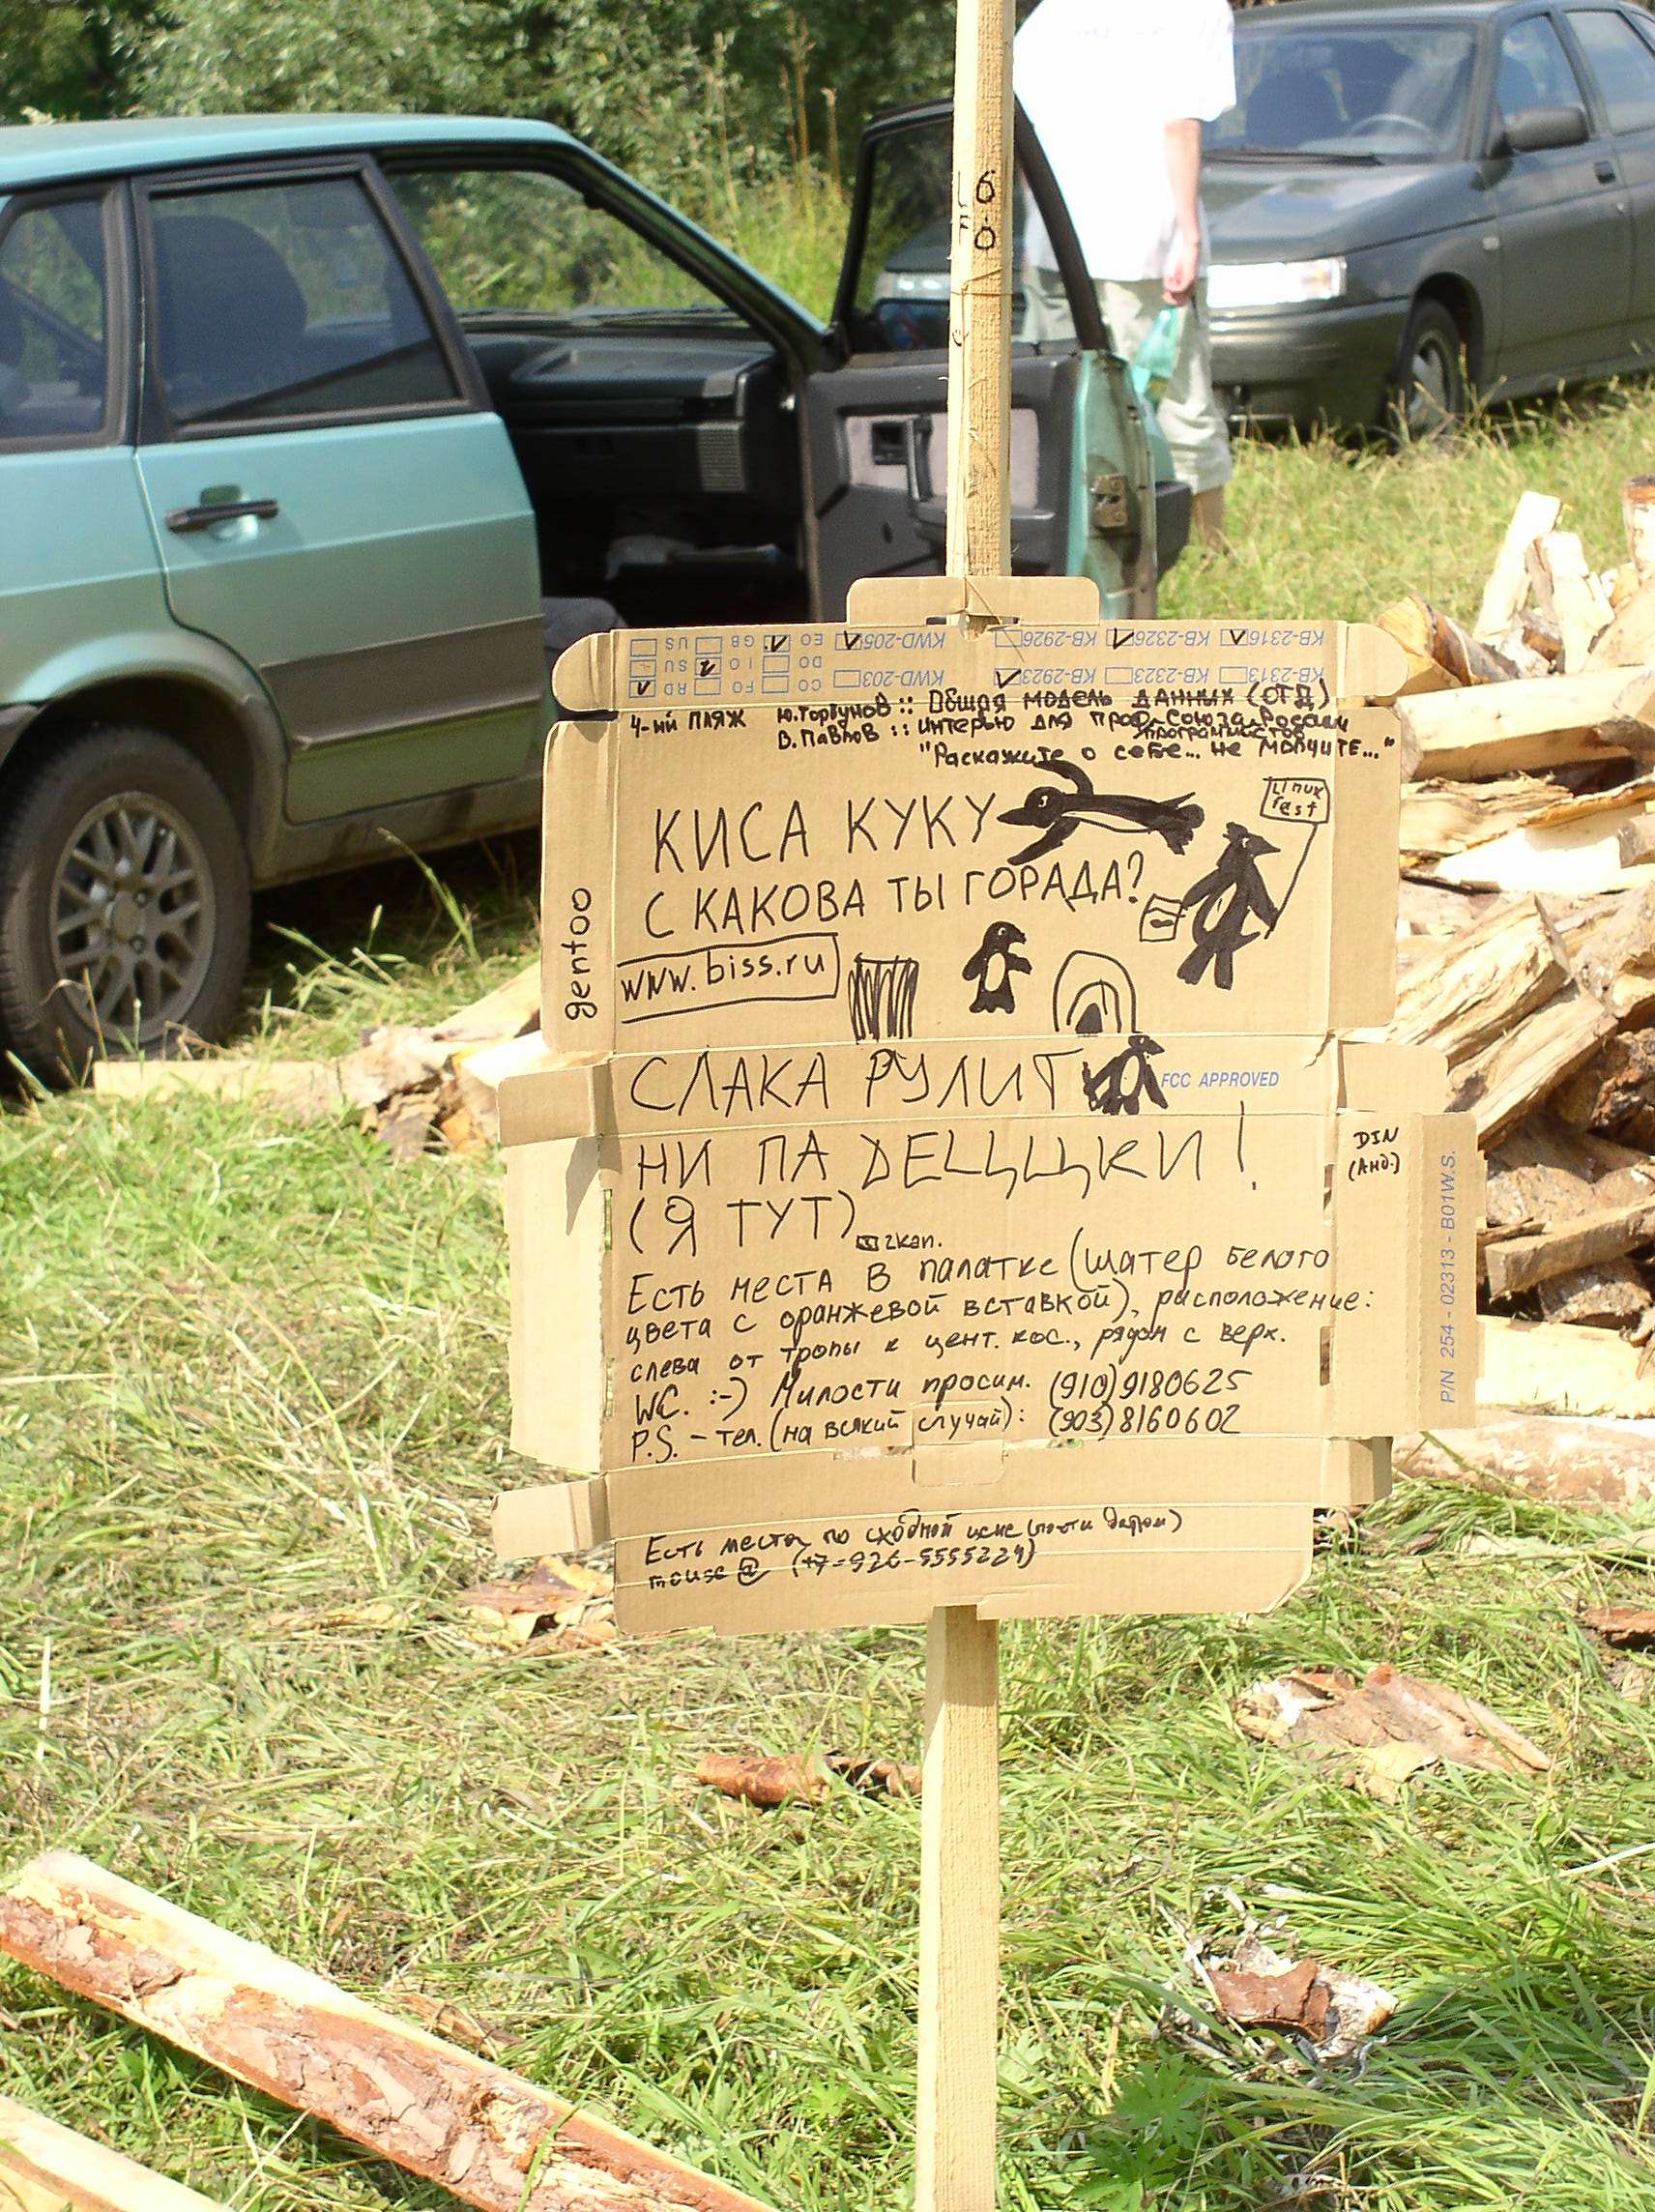 6.0
KB-2316 KB-2326 KB-2926 KWD-205 EO GB US
DO IO SU
KB-2313 KB-2323 KB-2923 KWD-203 CO FO RD
4-ый ПЛЯЖ Ю.Горбунов :: Общая модель данных (ОГД)
В.Павлов :: интервью для проф. Союза России
программистов
"Раскажите о себе... не молчите..."
Linux
fest
КИСА КУКУ
С КАКОВА ТЫ ГОРАДА?
gentoo
www.biss.ru
СЛАКА РУЛИТ
FCC APPROVED
НИ ПА ДЕЦЦКИ!
DIN
(АНД.)
(Я ТУТ)
2кап.
P/N 254-02313-B01W.S.
Есть места в палатке (шатер белого
цвета с оранжевой вставкой), расположение:
слева от тропы к цент. кос., рядом с верх.
WC. :-) Милости просим. (910)9180625
P.S. - тел. (на всякий случай): (903)8160602
Есть места по сходной цене (почти даром)
mouse @ (+7-926-5555224)